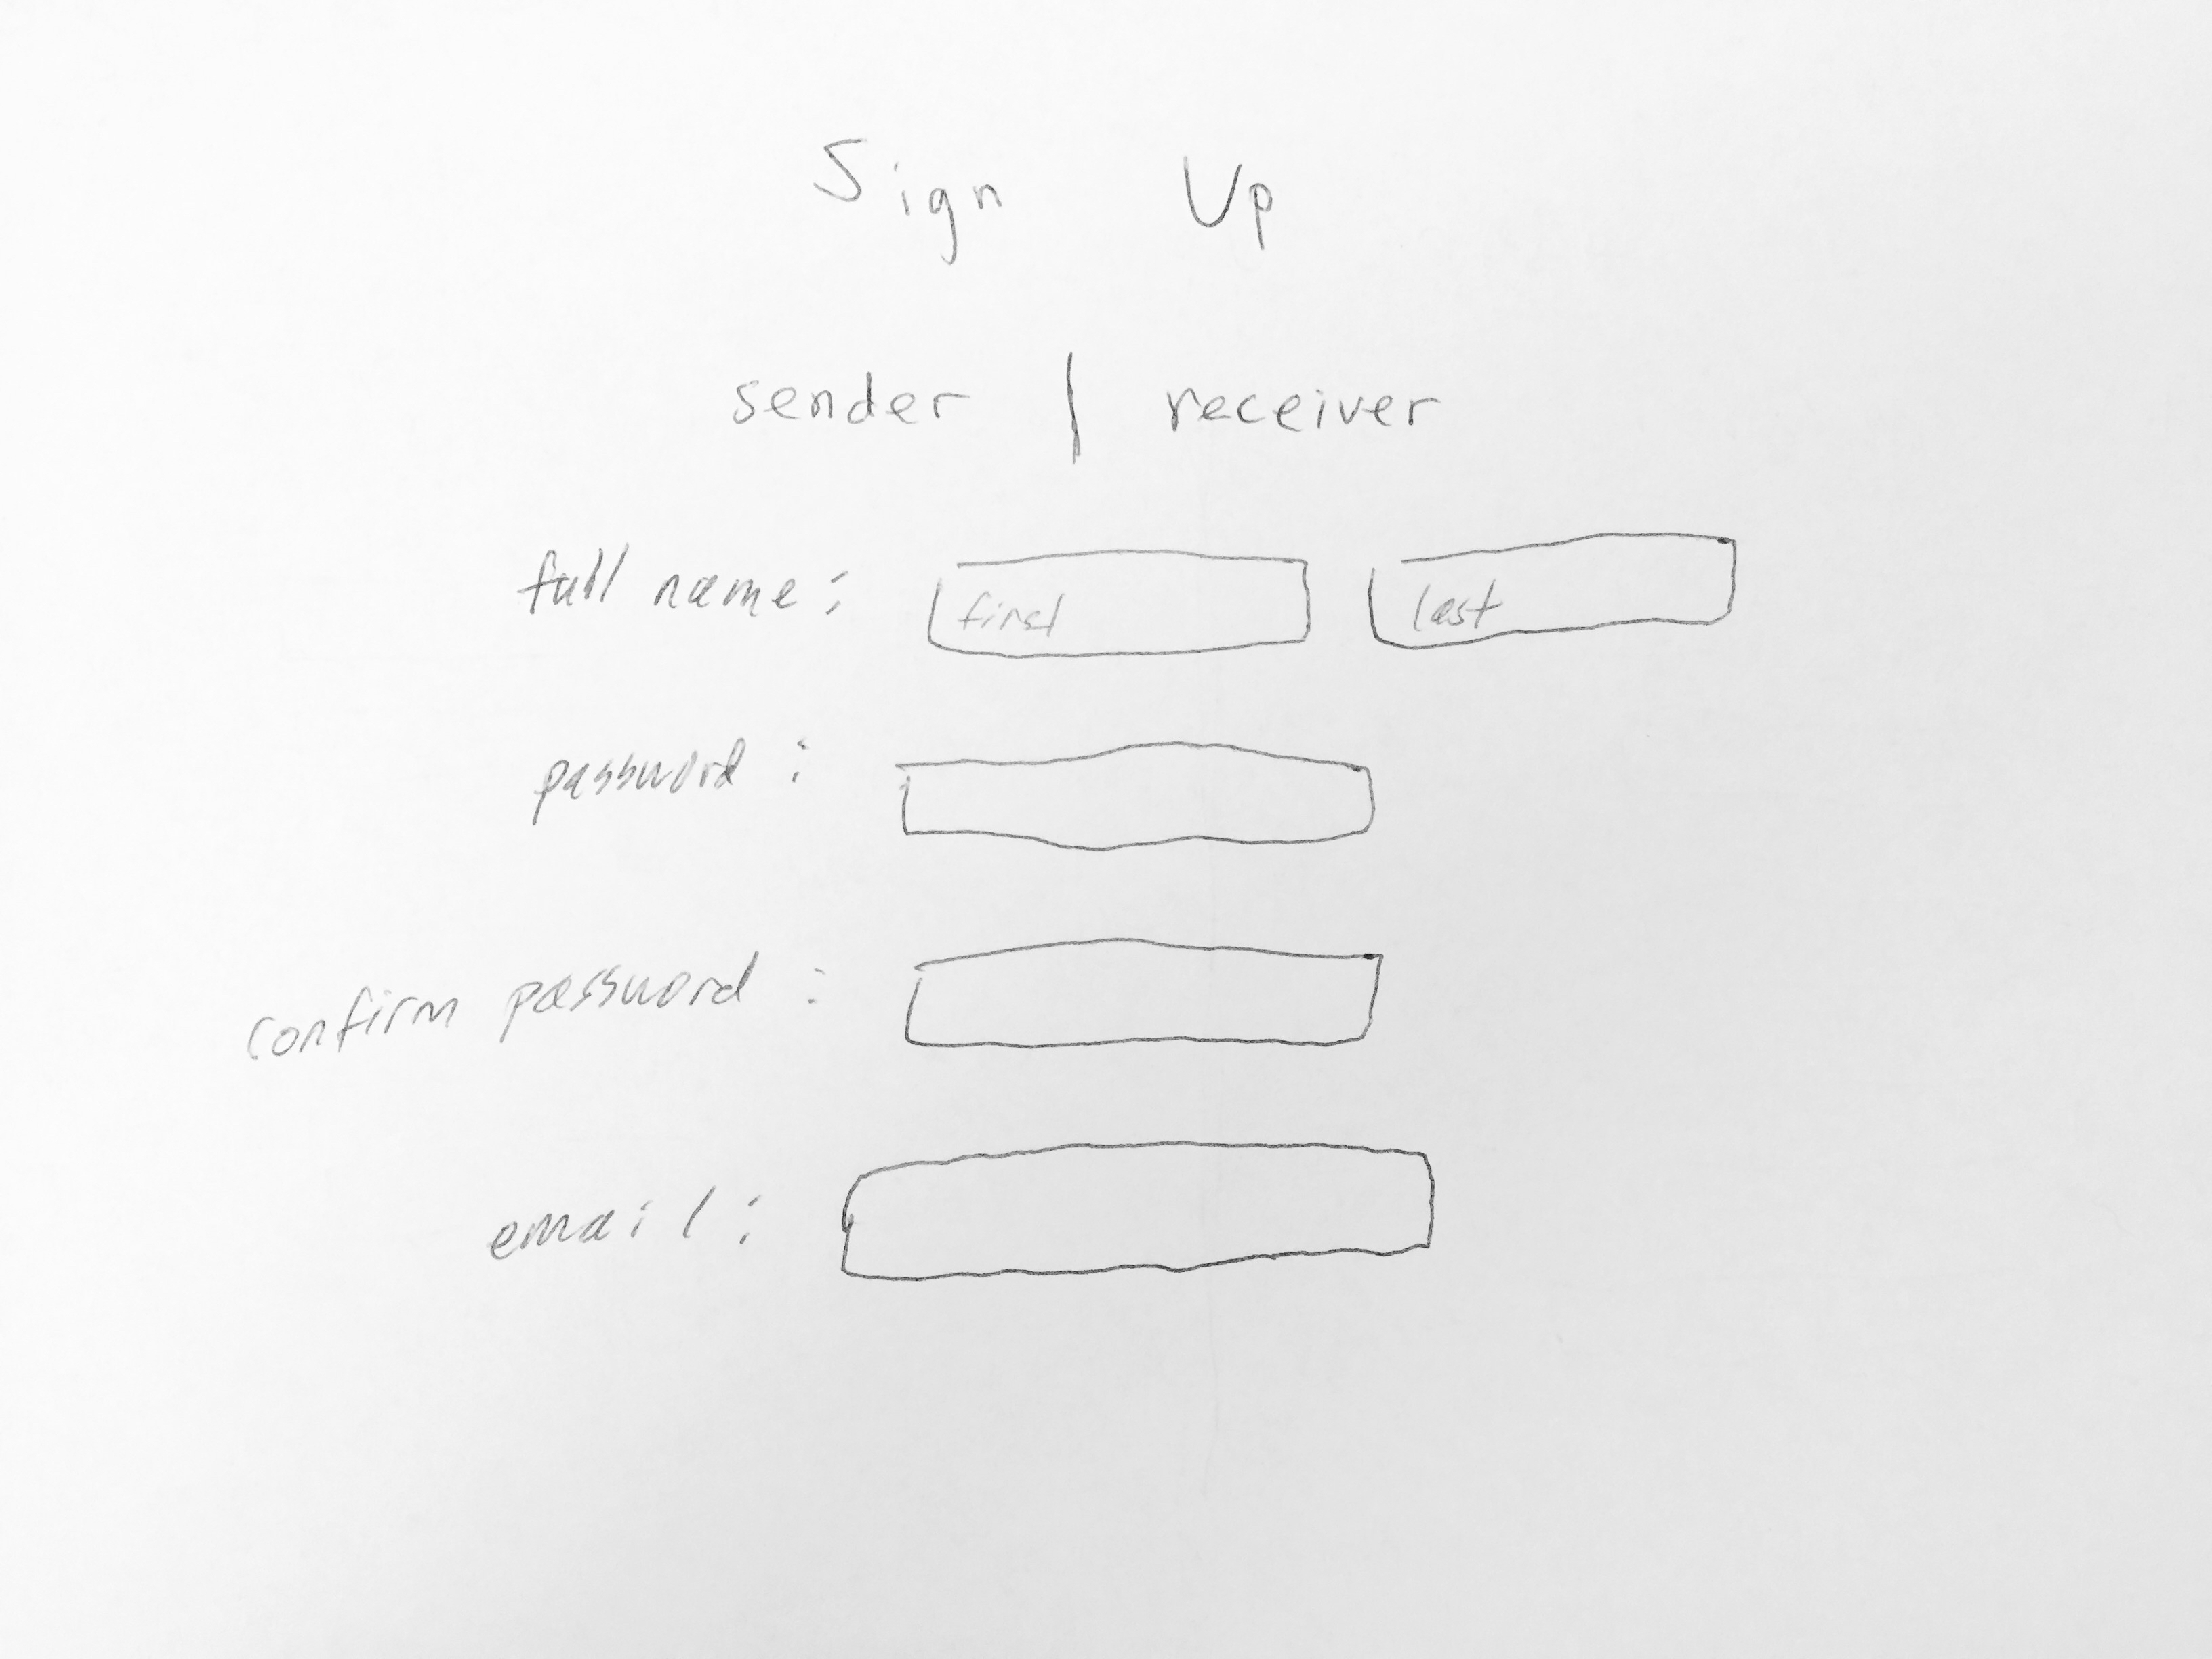 Sign Up
sender | receiver
full name: first last
password:
confirm password:
email: